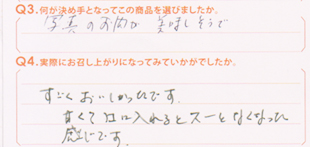 Q3.何が決め手となってこの商品を選びましたか。
写真のお肉が 美味しそうで
Q4.実際にお召し上がりになってみていかがでしたか。
すごくおいしかったです。
すぐて口に入れるとスーとなくなった
感じです。